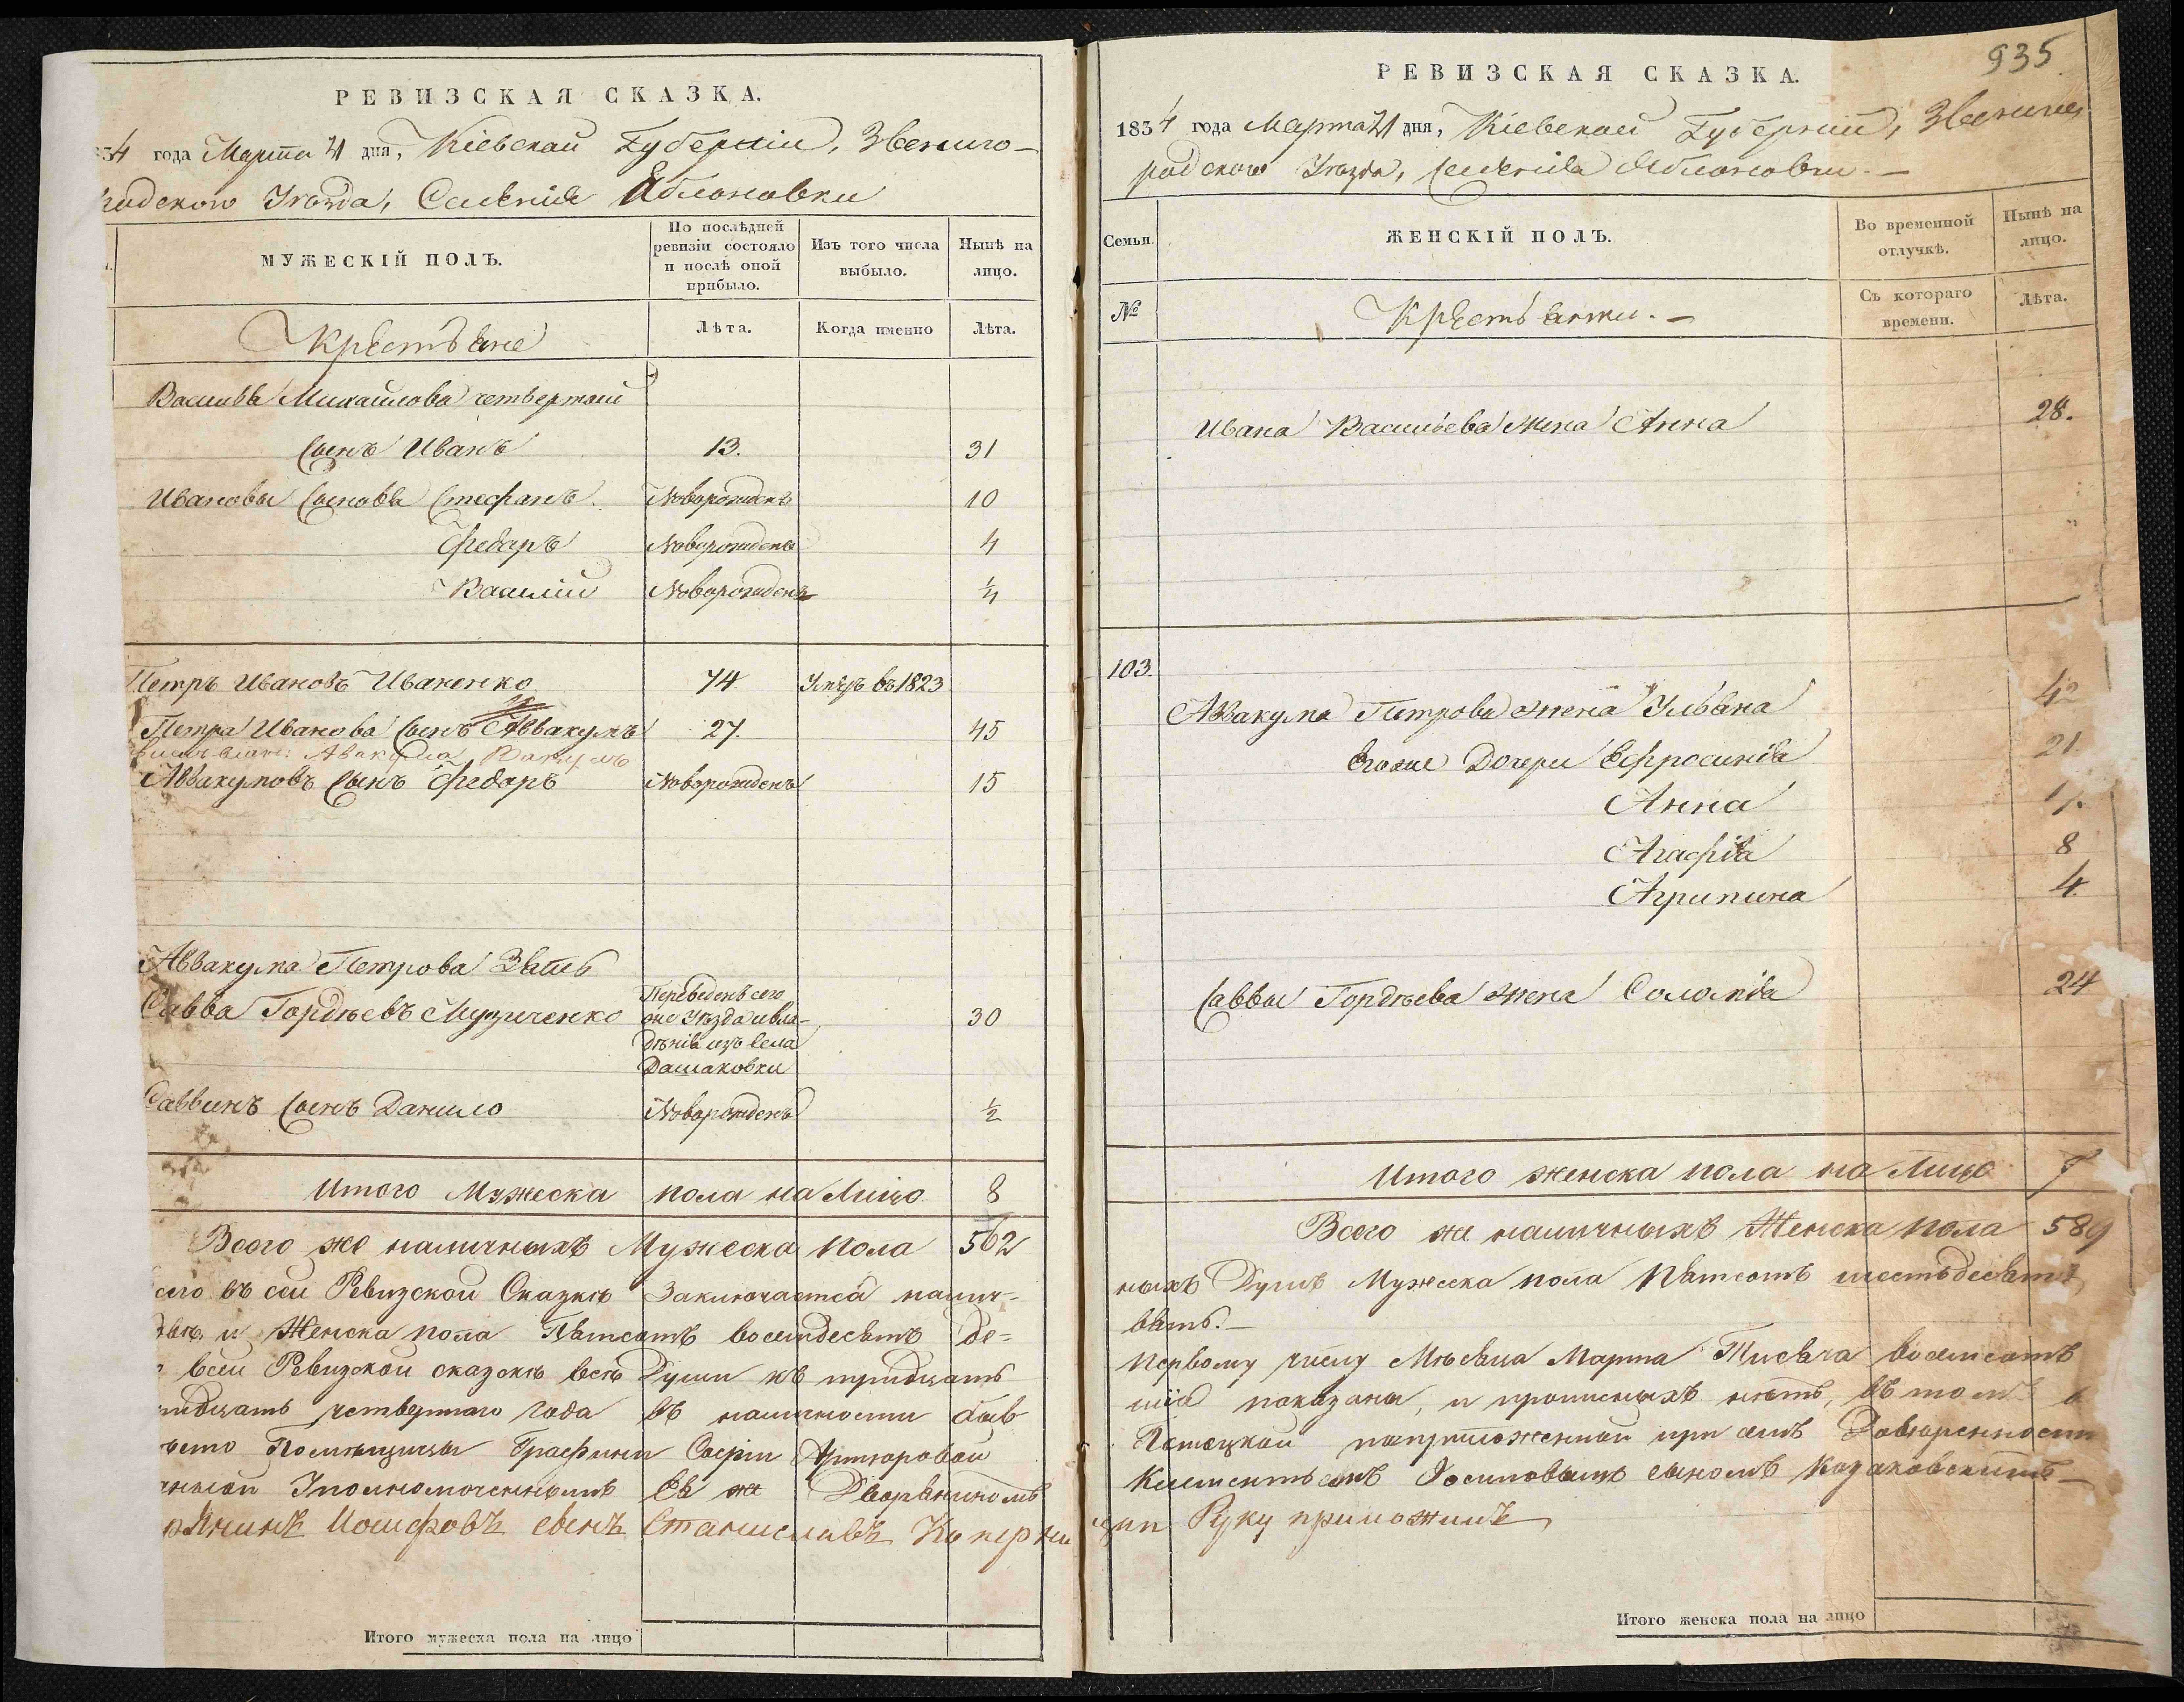 РЕВИЗСКАЯ СКАЗКА.
34 года Марта 21 дня, Кіевской Губерніи, Звениго-
родскаго Уѣзда, Селенія Яблоновки
МУЖЕСКІЙ ПОЛЪ.
По послѣдней ревизіи состояло и послѣ оной прибыло.
Изъ того числа выбыло.
Нынѣ на лицо.
Крестьяне
Лѣта.
Когда именно
Лѣта.
Василья Михайлова четвертой
сынъ Иванъ 13. 31
Ивановы сыновья Стефанъ Новорожденъ 10
Федоръ Новорожденъ 4
Василій Новорожденъ 1/4
Петръ Ивановъ Иваненко 74 Умеръ въ 1823
Петра Иванова сынъ Аввакумъ 27. 45
Авакума Вакумъ
Аввакумовъ сынъ Федоръ Новорожденъ 15
Аввакума Петрова Зять
Савва Гордѣевъ Музиченко Переведенъ сего 30
же Уѣзда и вла-
дѣнія изъ села
Дашаковки
Саввинъ сынъ Данило Новорожденъ 1/2
Итого Мужеска пола на Лицо 8
Всего же наличныхъ Мужеска пола 562
сего въ сей Ревизской Сказкѣ Заключается налич-
и Женска пола Пятсотъ восемдесятъ де-
всей Ревизской сказкѣ всѣ Души къ тридцать
ридцать четвертаго года въ наличности быв
Помѣщицы Графини Софіи
Уполномоченнымъ Ея же Дворяниномъ
Иосифовъ сынъ Станиславъ
Итого мужеска пола на лицо
935
РЕВИЗСКАЯ СКАЗКА.
1834 года Марта 21 дня, Кіевской Губерніи, Звениго
родскаго Уѣзда, Селенія Яблоновки. —
Семьи.
ЖЕНСКІЙ ПОЛЪ.
Во временной отлучкѣ.
Нынѣ на лицо.
№
Крестьянки. —
Съ котораго времени.
Лѣта.
Ивана Васильева жена Анна 28.
103.
Аввакума Петрова жена Ульяна 42
Егоже Дочери Ефросинія 21.
Анна 17.
Агафія 8
Агрипина 4.
Саввы Гордѣева жена Соломія 24
Итого женска пола на Лицо 7
Всего же наличныхъ Женска пола 589
ныхъ Душъ Мужеска пола Пятсотъ шестьдесятъ
вять. —
Первому числу Мѣсяца Марта Тысяча восемсотъ
показаны, и прописныхъ нѣтъ, въ томъ
Потоцкой приложенной при семъ Довѣренности
Осиповымъ сыномъ Козаковскимъ —
Руку приложилъ
Итого женска пола на лицо